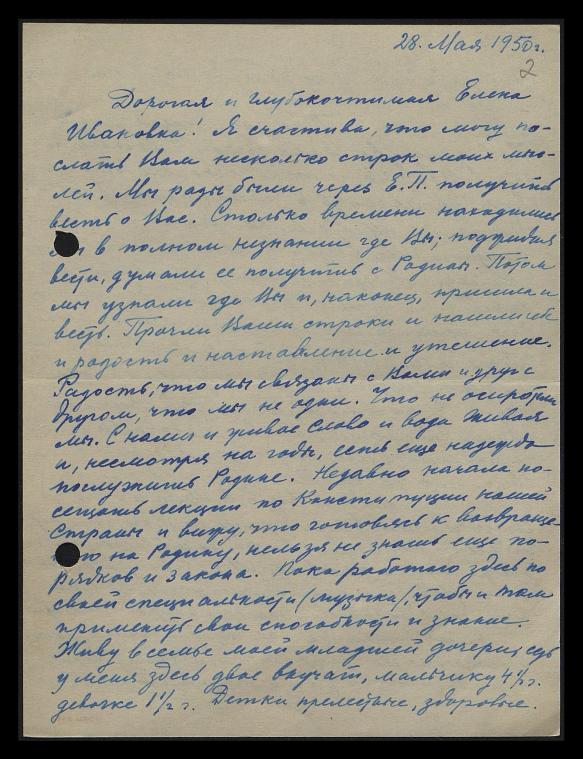 28. Мая 1950г.
2
Дорогая и глубокочтимая Елена
Ивановна! Я счастлива, что могу по-
слать Вам несколько строк моих мыс-
лей. Мы рады были через Е.П. получить
весть о Вас. Столько времени находились
мы в полном незнании где Вы; поджидая
вести, думали ее получить с Родины. Потом
мы узнали где Вы и, наконец, пришла и
весть. Прочли Ваши строки и нашли себе
и радость и наставление и утешение.
Радость, что мы связаны с Вами и друг с
другом, что мы не одни. Что не осиротели
мы. С нами и живое слово и вода живая
и, несмотря на годы, есть еще надежда
послужить Родине. Недавно начала по-
сещать лекции по Конституции нашей
страны и вижу, что готовясь к возвраще-
нию на Родину, нельзя не знать ещё по-
рядков и закона. Пока работаю здесь по
своей специальности (музыка), чтобы и там
применить свои способности и знание.
Живу в семье моей младшей дочери;
у меня здесь двое внучат, мальчику 4 1/2 г.
девочке 1 1/2 г. Детки прелестные, здоровые.